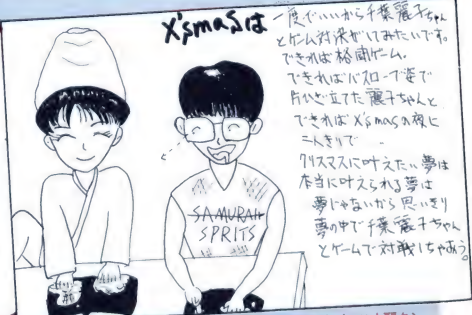 X'smasは
一度でいいから千葉麗子ちゃん
とゲーム対決がしてみたいです。
できれば格闘ゲーム。
できればバスローブ姿で
片ひざ立てた麗子ちゃんと
できればX'smasの夜に
二人きりで・・
クリスマスに叶えたい夢は
本当に叶えられる夢は
夢じゃないから思いきり
夢の中で千葉麗子ちゃん
とゲームで対戦しちゃおう。
SAMURAI
SPRITS